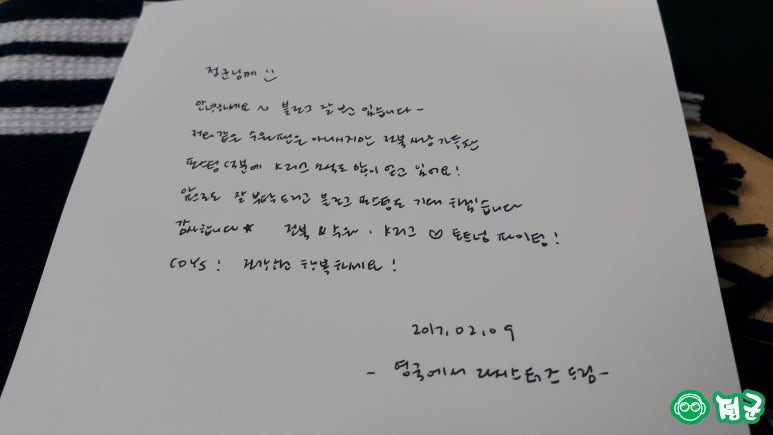 정군님께 :)
안녕하세요~ 블로그 잘 보고 있습니다-
저와 같은 수원팬은 아니시지만 전북사랑 가득한
포스팅 덕분에 K리그 소식도 많이 얻고 있어요!
앞으로도 잘 부탁드리고 블로그 포스팅도 기대 하겠습니다
감사합니다★ 전북 & 수원 · K리그 ♡ 토트넘 파이팅!
COYS! 건강하고 행복하세요!
2017.02.09
- 영국에서 드림-
정군